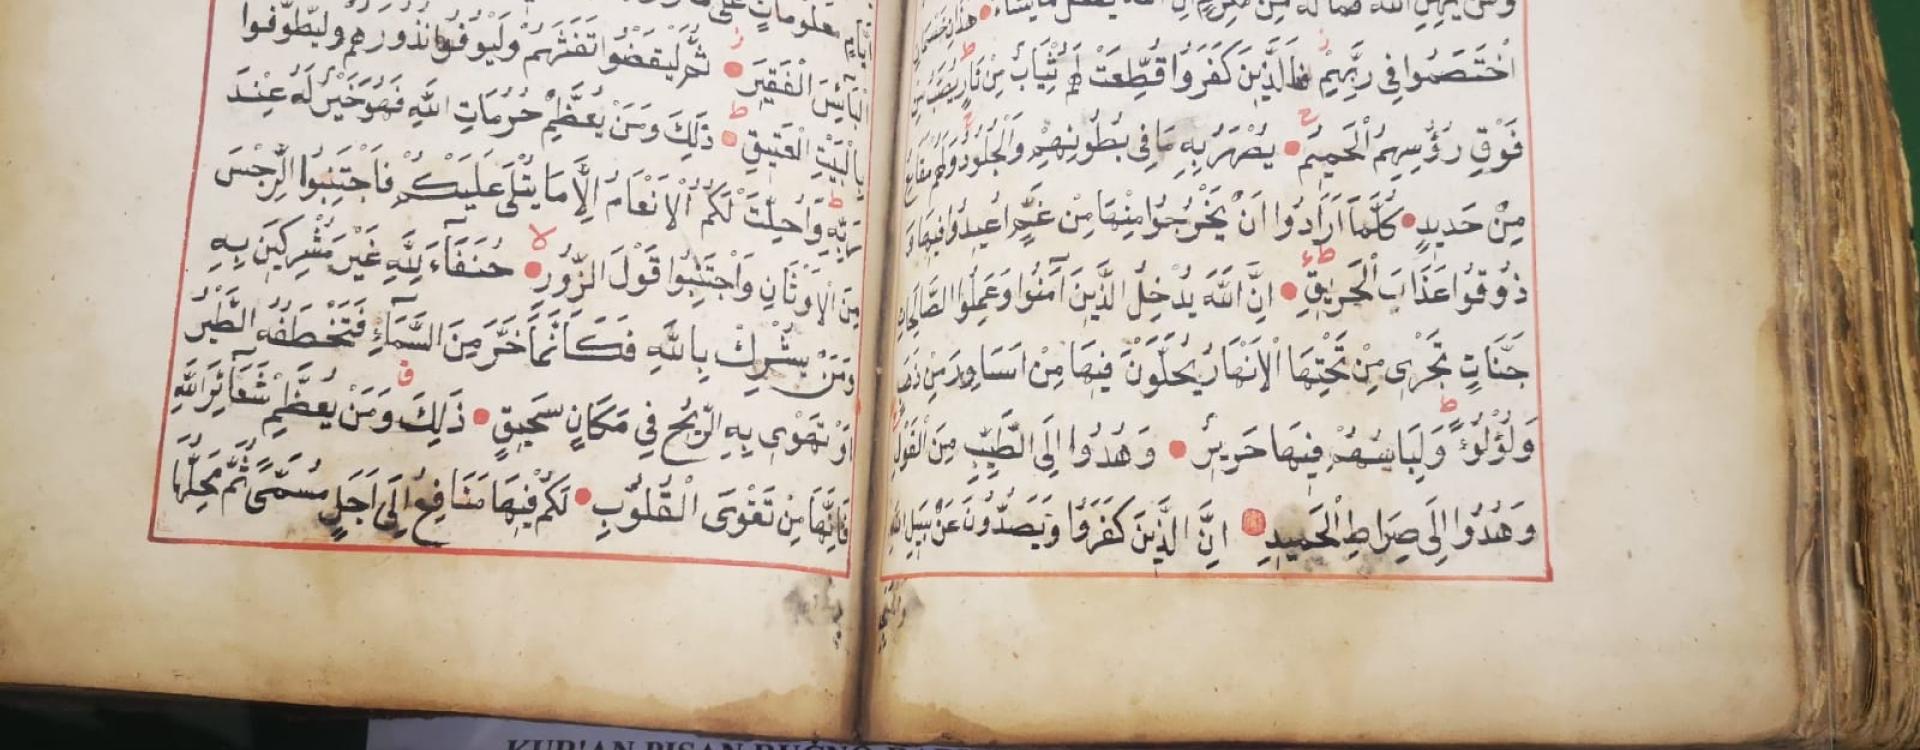 وَمَنْ يُهِنِ اللّٰهُ فَمَا لَهُ مِنْ مُكْرِمٍ اِنَّ اللّٰهَ يَفْعَلُ مَا يَشَاءُ هٰذَانِ خَصْمَانِ
اخْتَصَمُوا فِي رَبِّهِمْ فَالَّذِينَ كَفَرُوا قُطِّعَتْ لَهُمْ ثِيَابٌ مِنْ نَارٍ يُصَبُّ مِنْ
فَوْقِ رُؤُسِهِمُ الْحَمِيمُ يُصْهَرُ بِهِ مَا فِي بُطُونِهِمْ وَالْجُلُودُ وَلَهُمْ مَقَامِعُ
مِنْ حَدِيدٍ كُلَّمَا اَرَادُوا اَنْ يَخْرُجُوا مِنْهَا مِنْ غَمٍّ اُعِيدُوا فِيهَا وَ
ذُوقُوا عَذَابَ الْحَرِيقِ اِنَّ اللّٰهَ يُدْخِلُ الَّذِينَ آمَنُوا وَعَمِلُوا الصَّالِحَاتِ
جَنَّاتٍ تَجْرِى مِنْ تَحْتِهَا الْاَنْهَارُ يُحَلَّوْنَ فِيهَا مِنْ اَسَاوِرَ مِنْ ذَهَبٍ
وَلُؤْلُؤًا وَلِبَاسُهُمْ فِيهَا حَرِيرٌ وَهُدُوا اِلَى الطَّيِّبِ مِنَ الْقَوْلِ
وَهُدُوا اِلَى صِرَاطِ الْحَمِيدِ اِنَّ الَّذِينَ كَفَرُوا وَيَصُدُّونَ عَنْ سَبِيلِ اللّٰهِ
مَعْلُومَاتٍ عَلَى مَا
الْبَائِسَ الْفَقِيرَ ثُمَّ لْيَقْضُوا تَفَثَهُمْ وَلْيُوفُوا نُذُورَهُمْ وَلْيَطَّوَّفُوا
بِالْبَيْتِ الْعَتِيقِ ذٰلِكَ وَمَنْ يُعَظِّمْ حُرُمَاتِ اللّٰهِ فَهُوَ خَيْرٌ لَهُ عِنْدَ
رَبِّهِ وَاُحِلَّتْ لَكُمُ الْاَنْعَامُ اِلَّا مَا يُتْلَى عَلَيْكُمْ فَاجْتَنِبُوا الرِّجْسَ
مِنَ الْاَوْثَانِ وَاجْتَنِبُوا قَوْلَ الزُّورِ حُنَفَاءَ لِلّٰهِ غَيْرَ مُشْرِكِينَ بِهِ
وَمَنْ يُشْرِكْ بِاللّٰهِ فَكَاَنَّمَا خَرَّ مِنَ السَّمَاءِ فَتَخْطَفُهُ الطَّيْرُ
اَوْ تَهْوِى بِهِ الرِّيحُ فِي مَكَانٍ سَحِيقٍ ذٰلِكَ وَمَنْ يُعَظِّمْ شَعَائِرَ اللّٰهِ
فَاِنَّهَا مِنْ تَقْوَى الْقُلُوبِ لَكُمْ فِيهَا مَنَافِعُ اِلَى اَجَلٍ مُسَمًّى ثُمَّ مَحِلُّهَا
KUR'AN PISAN RUČNO